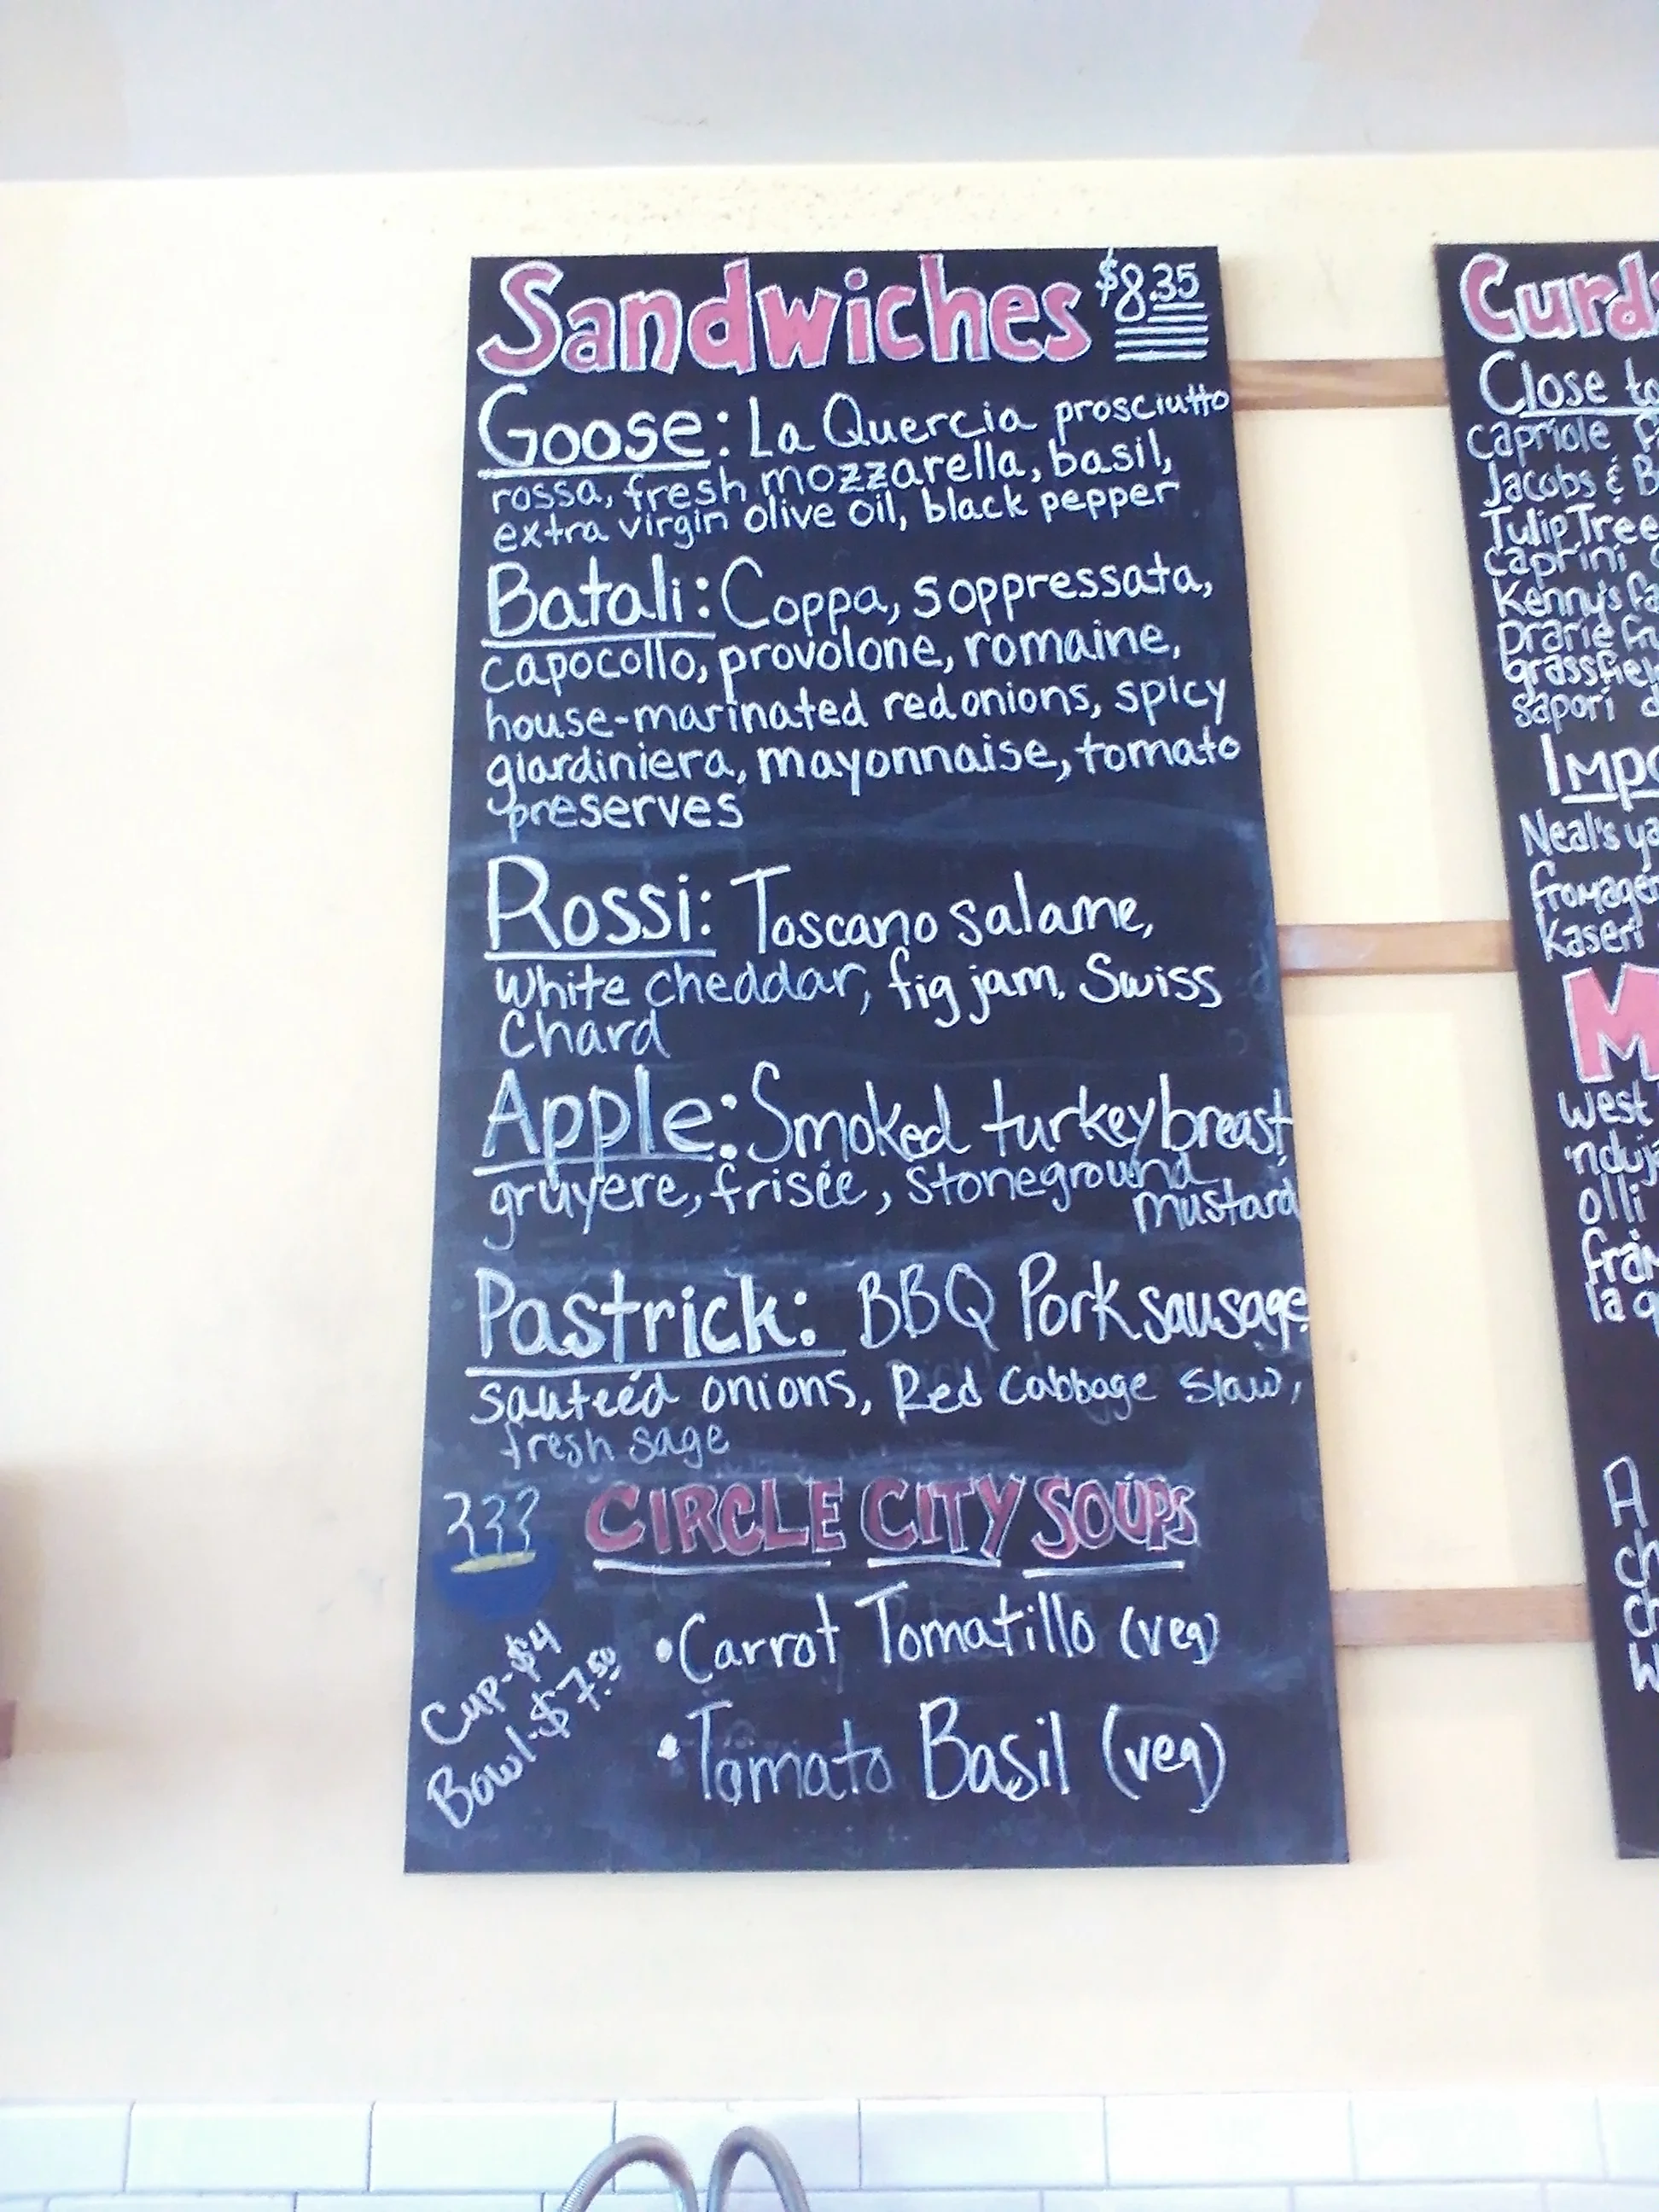 Sandwiches $8.35
Goose: La Quercia prosciutto
rossa, fresh mozzarella, basil,
extra virgin olive oil, black pepper
Batali: Coppa, soppressata,
capocollo, provolone, romaine,
house-marinated red onions, spicy
giardiniera, mayonnaise, tomato
preserves
Rossi: Toscano salame,
White cheddar, fig jam, Swiss
Chard
Apple: Smoked turkey breast,
gruyere, friseé, stoneground
mustard
Pastrick: BBQ Pork sausage,
sauteéd onions, Red Cabbage Slaw,
fresh sage
CIRCLE CITY SOUPS
Cup-$4
Bowl-$7.50
•Carrot Tomatillo (veg)
•Tomato Basil (veg)
Close to
capriole
Jacobs &
Tulip Tree
caprini
Kenny's
prarie
sapori
Neal's
Kaseri
M
west
olli
la
A